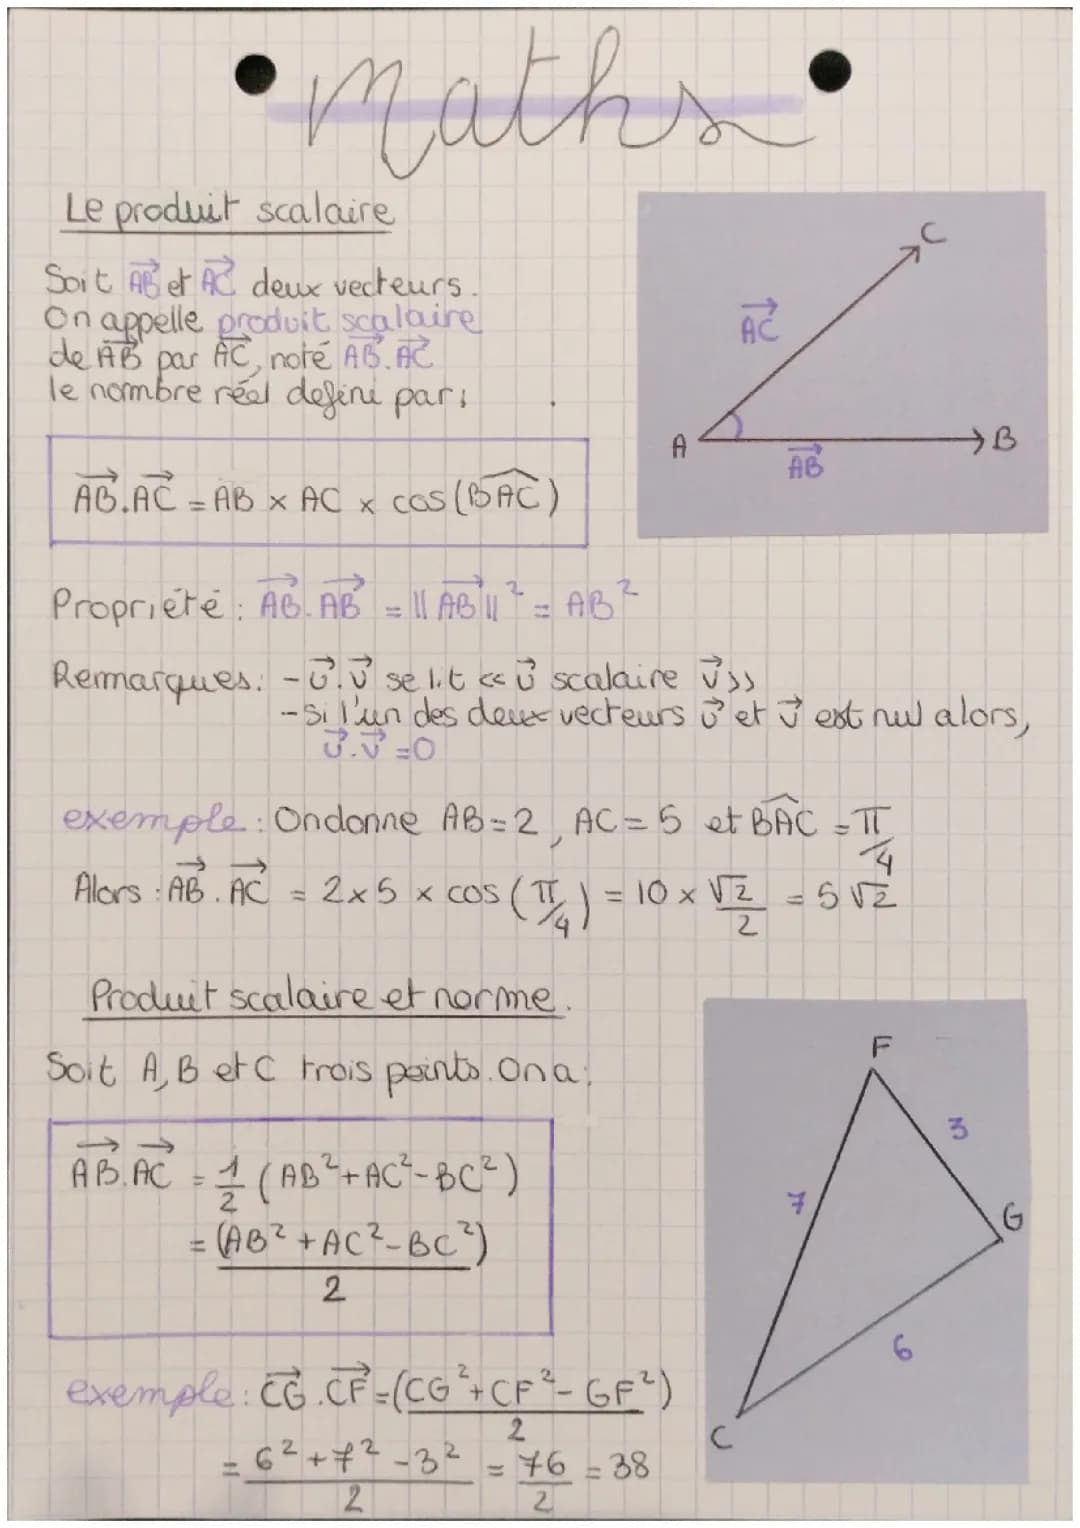 Maths
Le produit scalaire
Soit AB⃗ et AC⃗ deux vecteurs.
On appelle produit scalaire
de AB⃗ par AC⃗, noté AB⃗.AC⃗
le nombre réel defini par:
AB⃗.AC⃗ = AB × AC × cos(B͡AC)
C
AC⃗
A
B
AB⃗
Propriété : AB⃗.AB⃗ = ||AB⃗||² = AB²
Remarques: - u⃗.v⃗ se lit << u⃗ scalaire v⃗ >>
- Si l'un des deux vecteurs u⃗ et v⃗ est nul alors,
u⃗.v⃗ = 0
exemple : On donne AB = 2, AC = 5 et B̂AC = π/4
Alors : AB⃗.AC⃗ = 2×5 × cos(π/4) = 10 × √2/2 = 5√2
Produit scalaire et norme.
Soit A, B et C trois points. On a:
AB⃗.AC⃗ = 1/2 (AB²+AC²-BC²)
= (AB²+AC²-BC²)/2
F
3
7
G
6
C
exemple : CG⃗.CF⃗ = (CG²+CF²-GF²)/2
= 6²+7²-3²/2 = 76/2 = 38